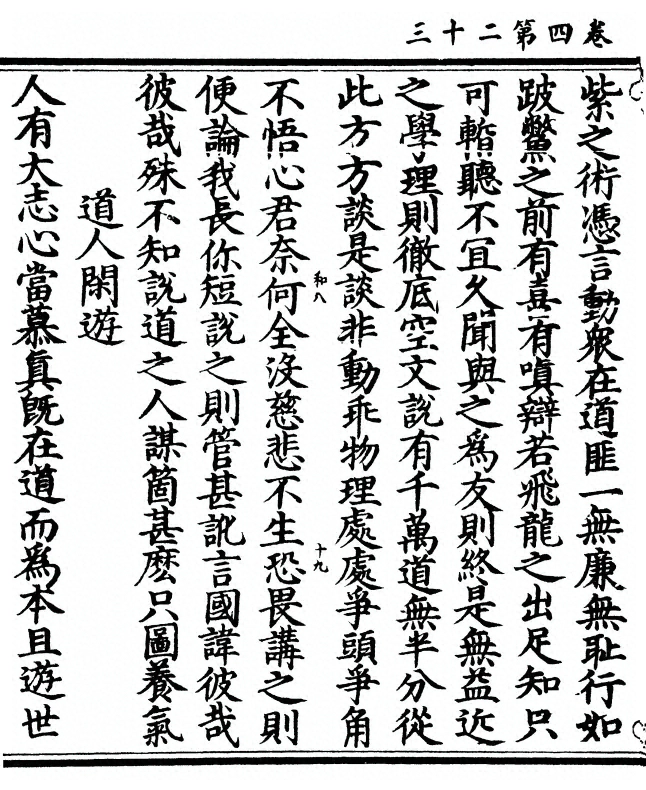 卷四第二十三
紫之術憑言動衆在道匪一無廉無耻行如
跛鱉之前有喜有嗔辯若飛龍之出足知只
可暫聽不冝久聞與之爲友則終是無益近
之學理則徹底空文說有千萬道無半分從
此方方談是談非動乖物理處處爭頭爭角
和八
十九
不悟心君奈何全没慈悲不生恐畏講之則
便論我長你短說之則管甚訛言國諱彼哉
彼哉殊不知說道之人謀箇甚麽只圖養氣
道人閑遊
人有大志心當慕眞既在道而爲本且遊世